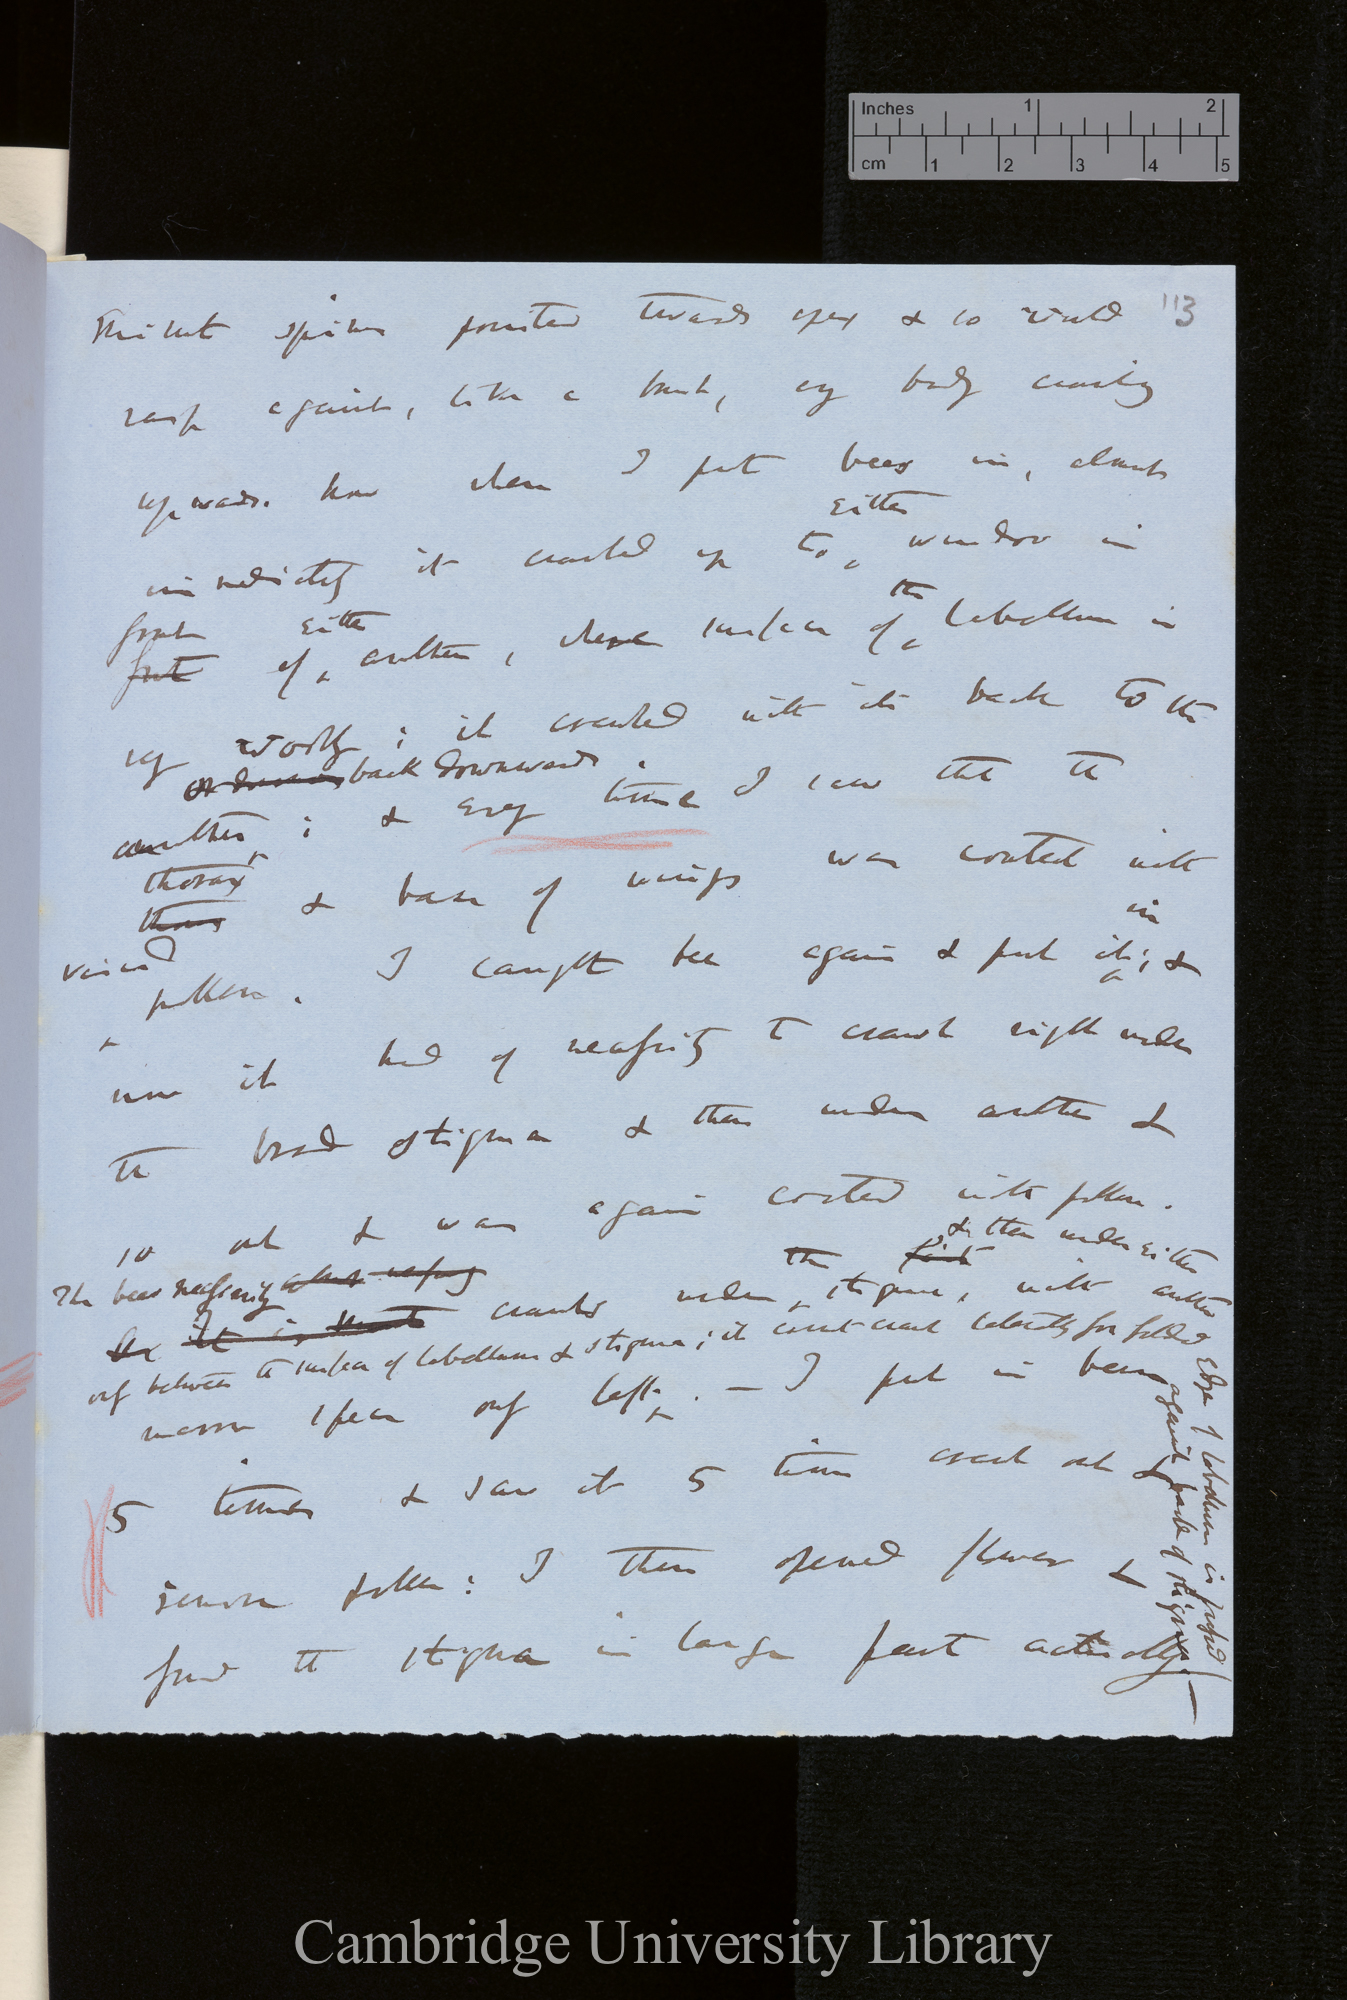 Inches 1 2
cm 1 2 3 4 5
113
spines pointed towards apex & so would
rasp against, like a brush, any body crawling
upwards. Now when I put bees in, almost
either
immediately it crawled up to window in
front either the
front of anther, where surface of labellum is
very woolly; it crawled with its back to the
back downwards.
anther; & every time I saw that the
thorax
& base of wings was coated with
in
viscid
pollen. I caught bee again & put it; &
now it had of necessity to crawl right under
the broad stigma & then under anther &
so out & was again coated with pollen.
& then under either
The bees necessarily
it is crawls under the stigma, with anther
between the surface of labellum & stigma; it can't crawl laterally for folded
Edge of labellum is pressed
against back of stigma.—
left. — I put in bee
5 times & saw it 5 times crawl out &
remove pollen: I then opened flower &
found the stigma in large part actually
Cambridge University Library